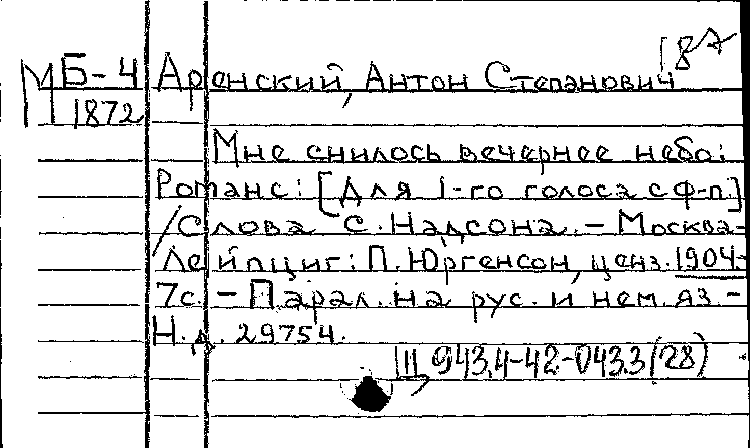 187
МБ-4 Аренский, Антон Степанович
1872
Мне снилось вечернее небо:
Романс: [Для 1-го голоса с ф-п.]
/Слова С. Надсона. - Москва-
Лейпциг: П. Юргенсон, ценз. 1904.-
7с. - Парал. на рус. и нем. яз. -
Н.д. 29754.
Щ943.4-42-043.3(28)